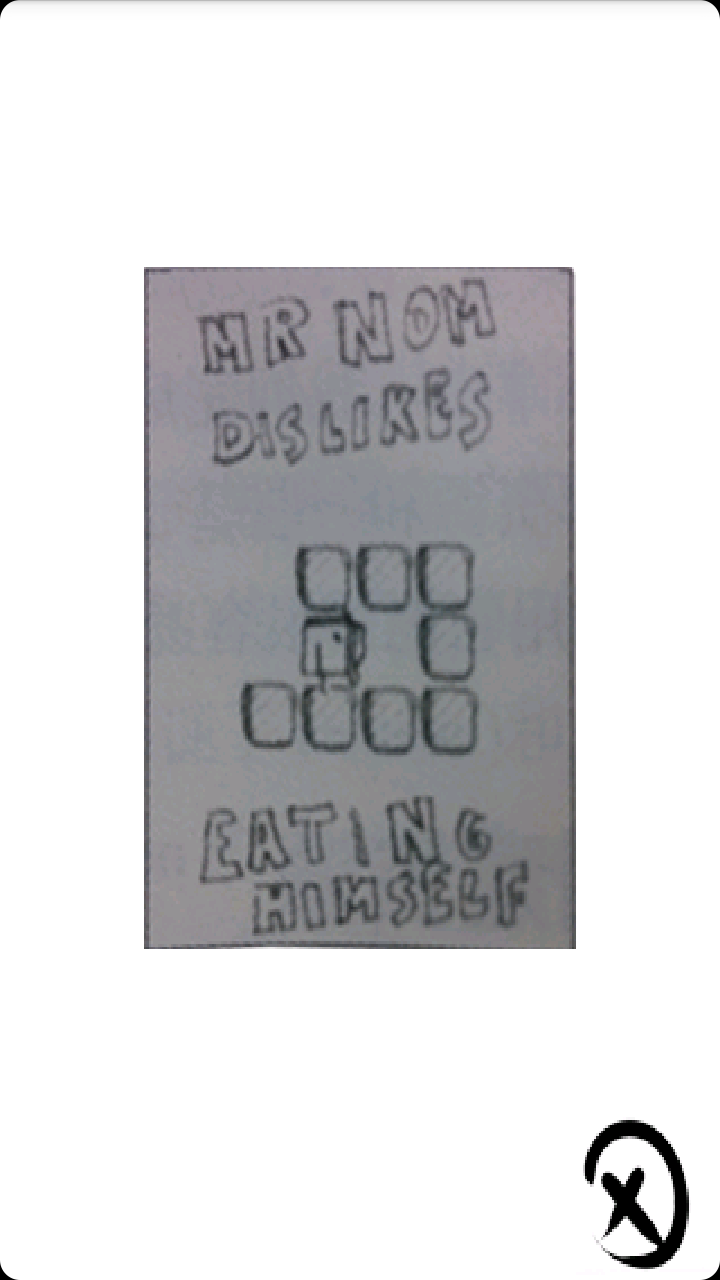 MR NOM
DISLIKES
EATING
HIMSELF